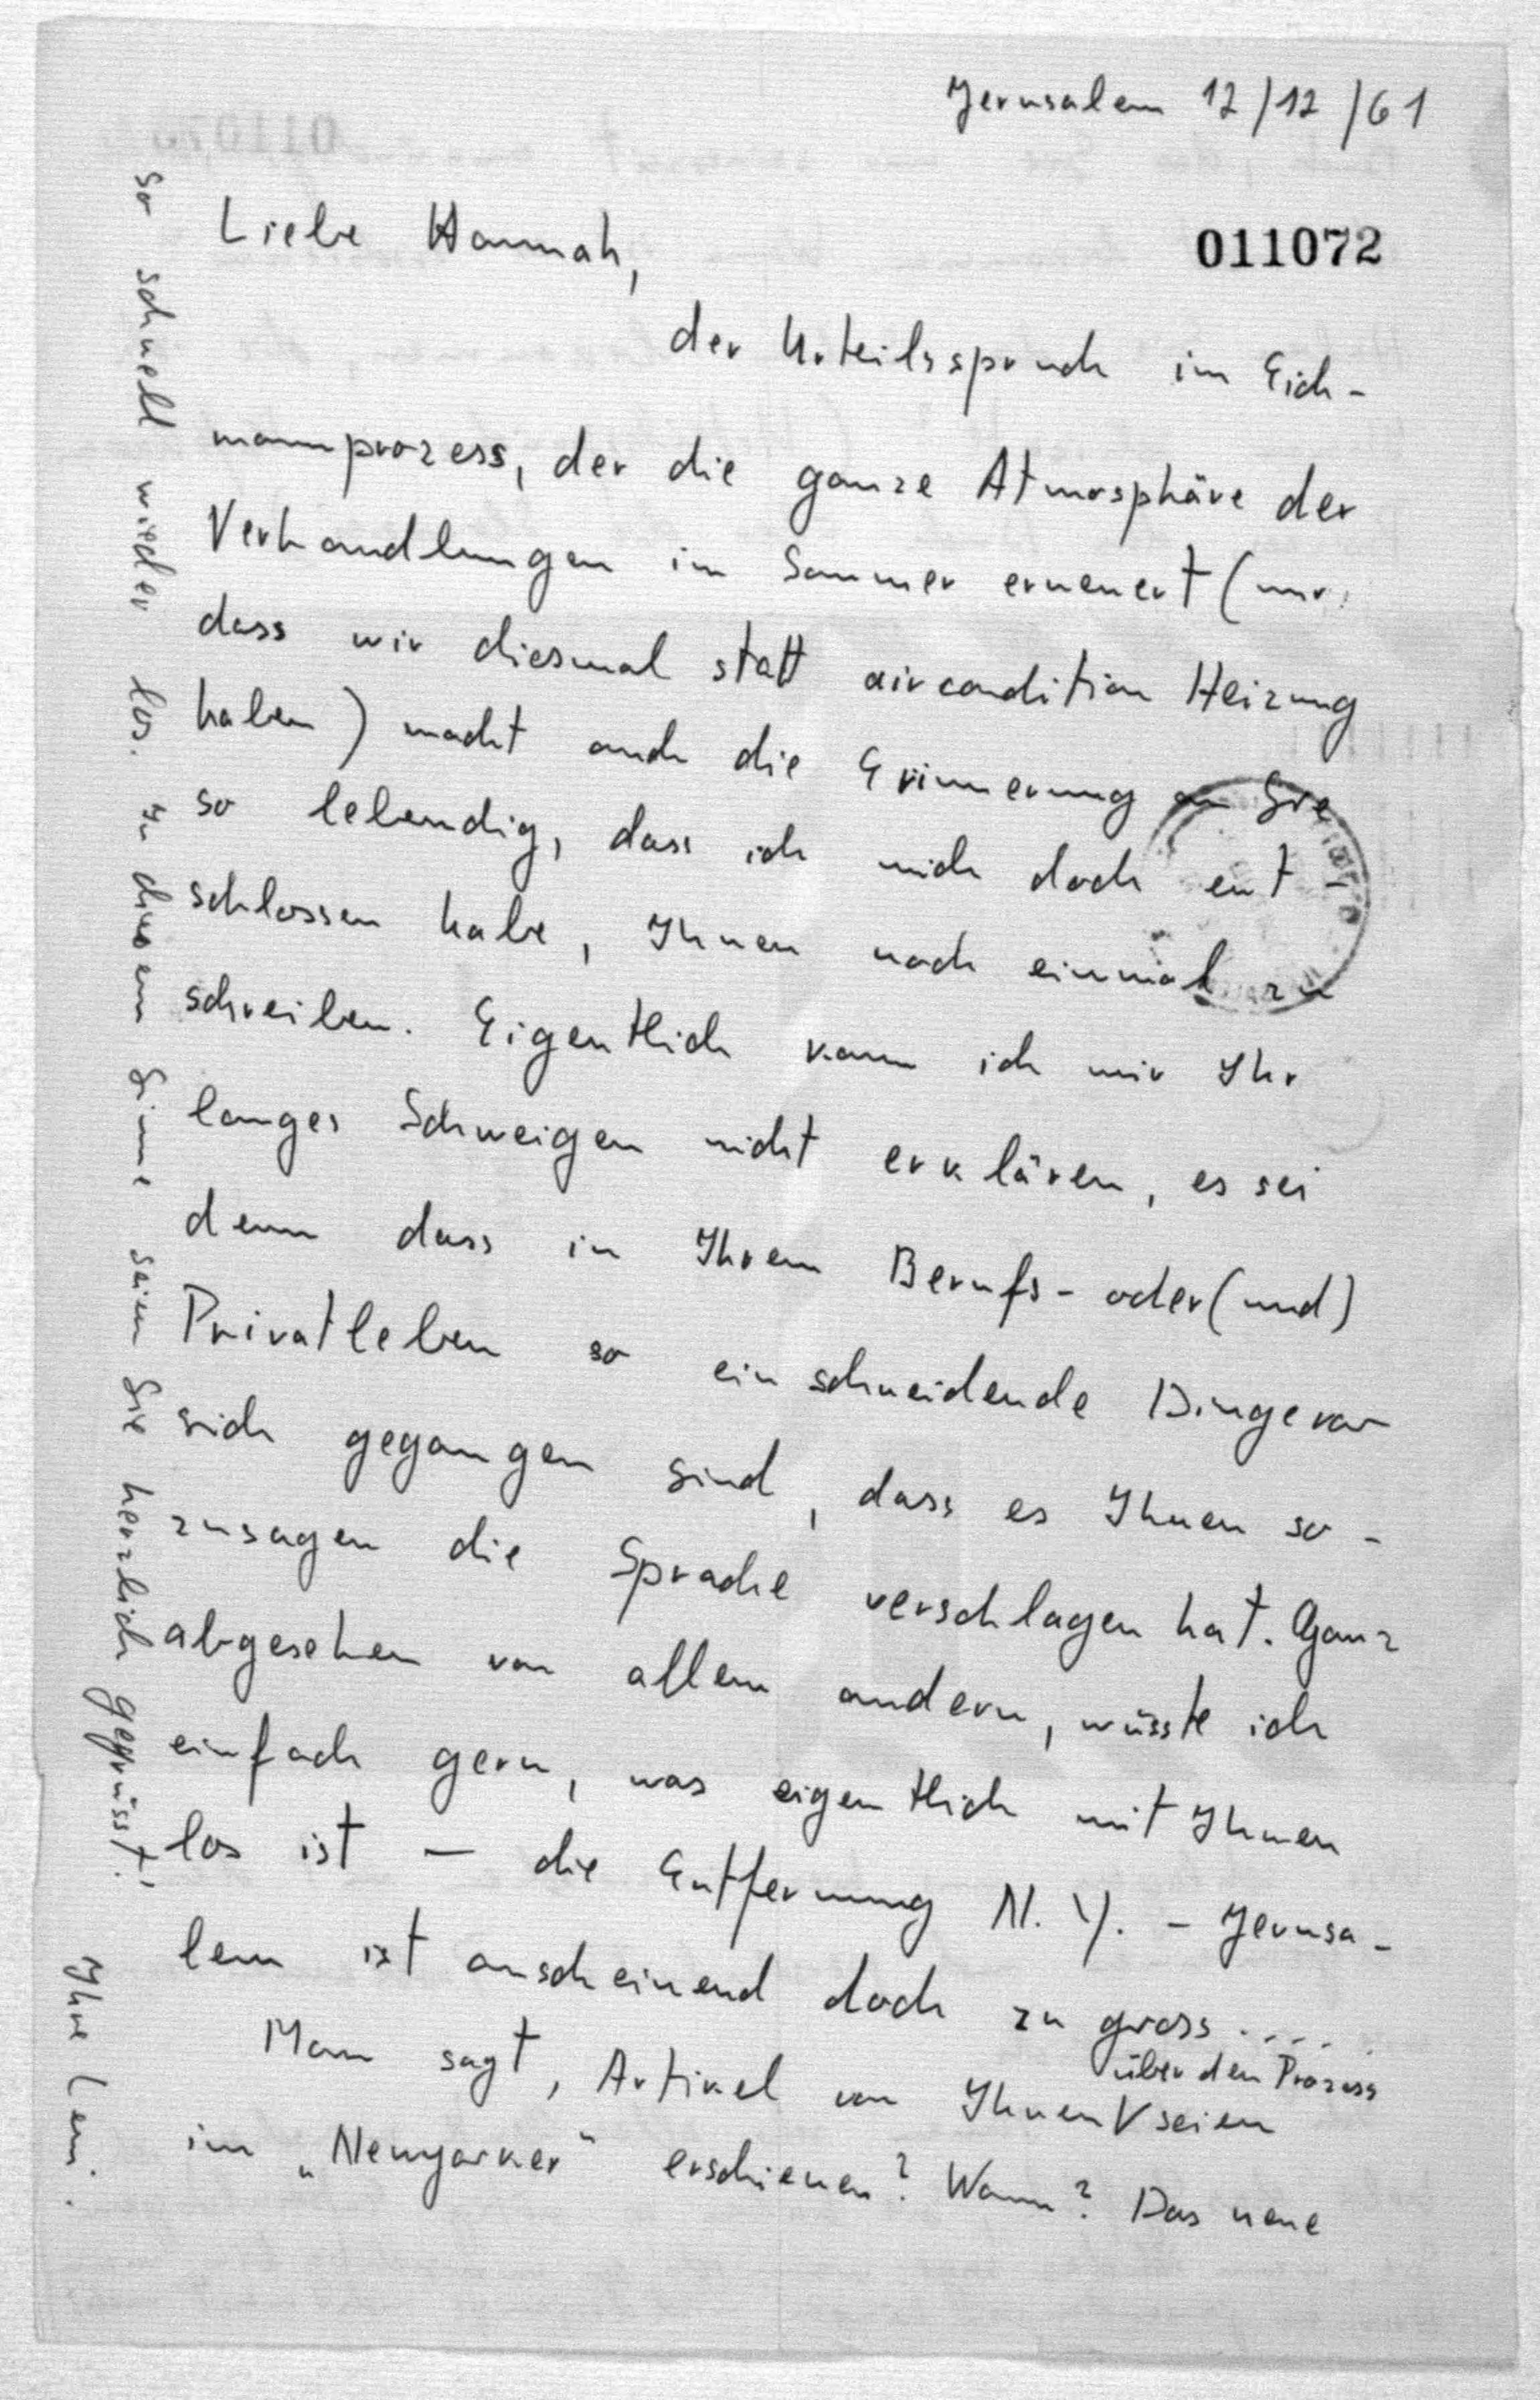 Jerusalem 12/12/61
011072
Liebe Hannah,
der Urteilsspruch im Eich-
mannprozess, der die ganze Atmosphäre der
Verhandlungen im Sommer erneuert (nur,
dass wir diesmal statt aircondition Heizung
haben) macht auch die Erinnerung an Sie
so lebendig, dass ich mich doch ent-
schlossen habe, Ihnen noch einmal zu
schreiben. Eigentlich kann ich mir Ihr
langes Schweigen nicht erklären, es sei
denn dass in Ihrem Berufs- oder (und)
Privatleben so einschneidende Dinge vor
sich gegangen sind, dass es Ihnen so-
zusagen die Sprache verschlagen hat. Ganz
abgesehen von allem andern, wüsste ich
einfach gern, was eigentlich mit Ihnen
los ist — die Entfernung N.Y. - Jerusa-
lem ist anscheinend doch zu gross....
über den Prozess
Man sagt, Artikel von Ihnen V seien
im „Newyorker" erschienen? Wann? Das neue
so schnell wieder los. In diesem Sinne seien Sie herzlich gegrüsst!
Ihre Leni.